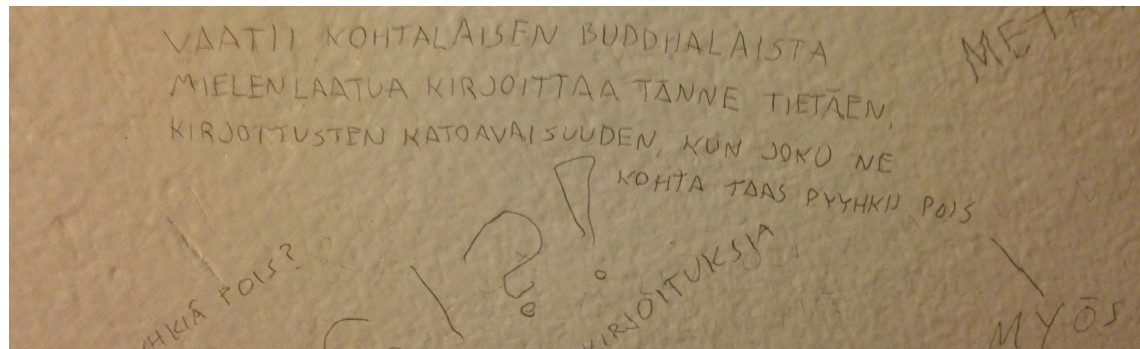 VAATII KOHTALAISEN BUDDHALAISTA
MIELENLAATUA KIRJOITTAA TÄNNE TIETÄEN,
KIRJOITUSTEN KATOAVAISUUDEN, KUN JOKU NE
KOHTA TAAS PYYHKII POIS
!
?
POIS?
KIRJOITUKSIA
MYÖS